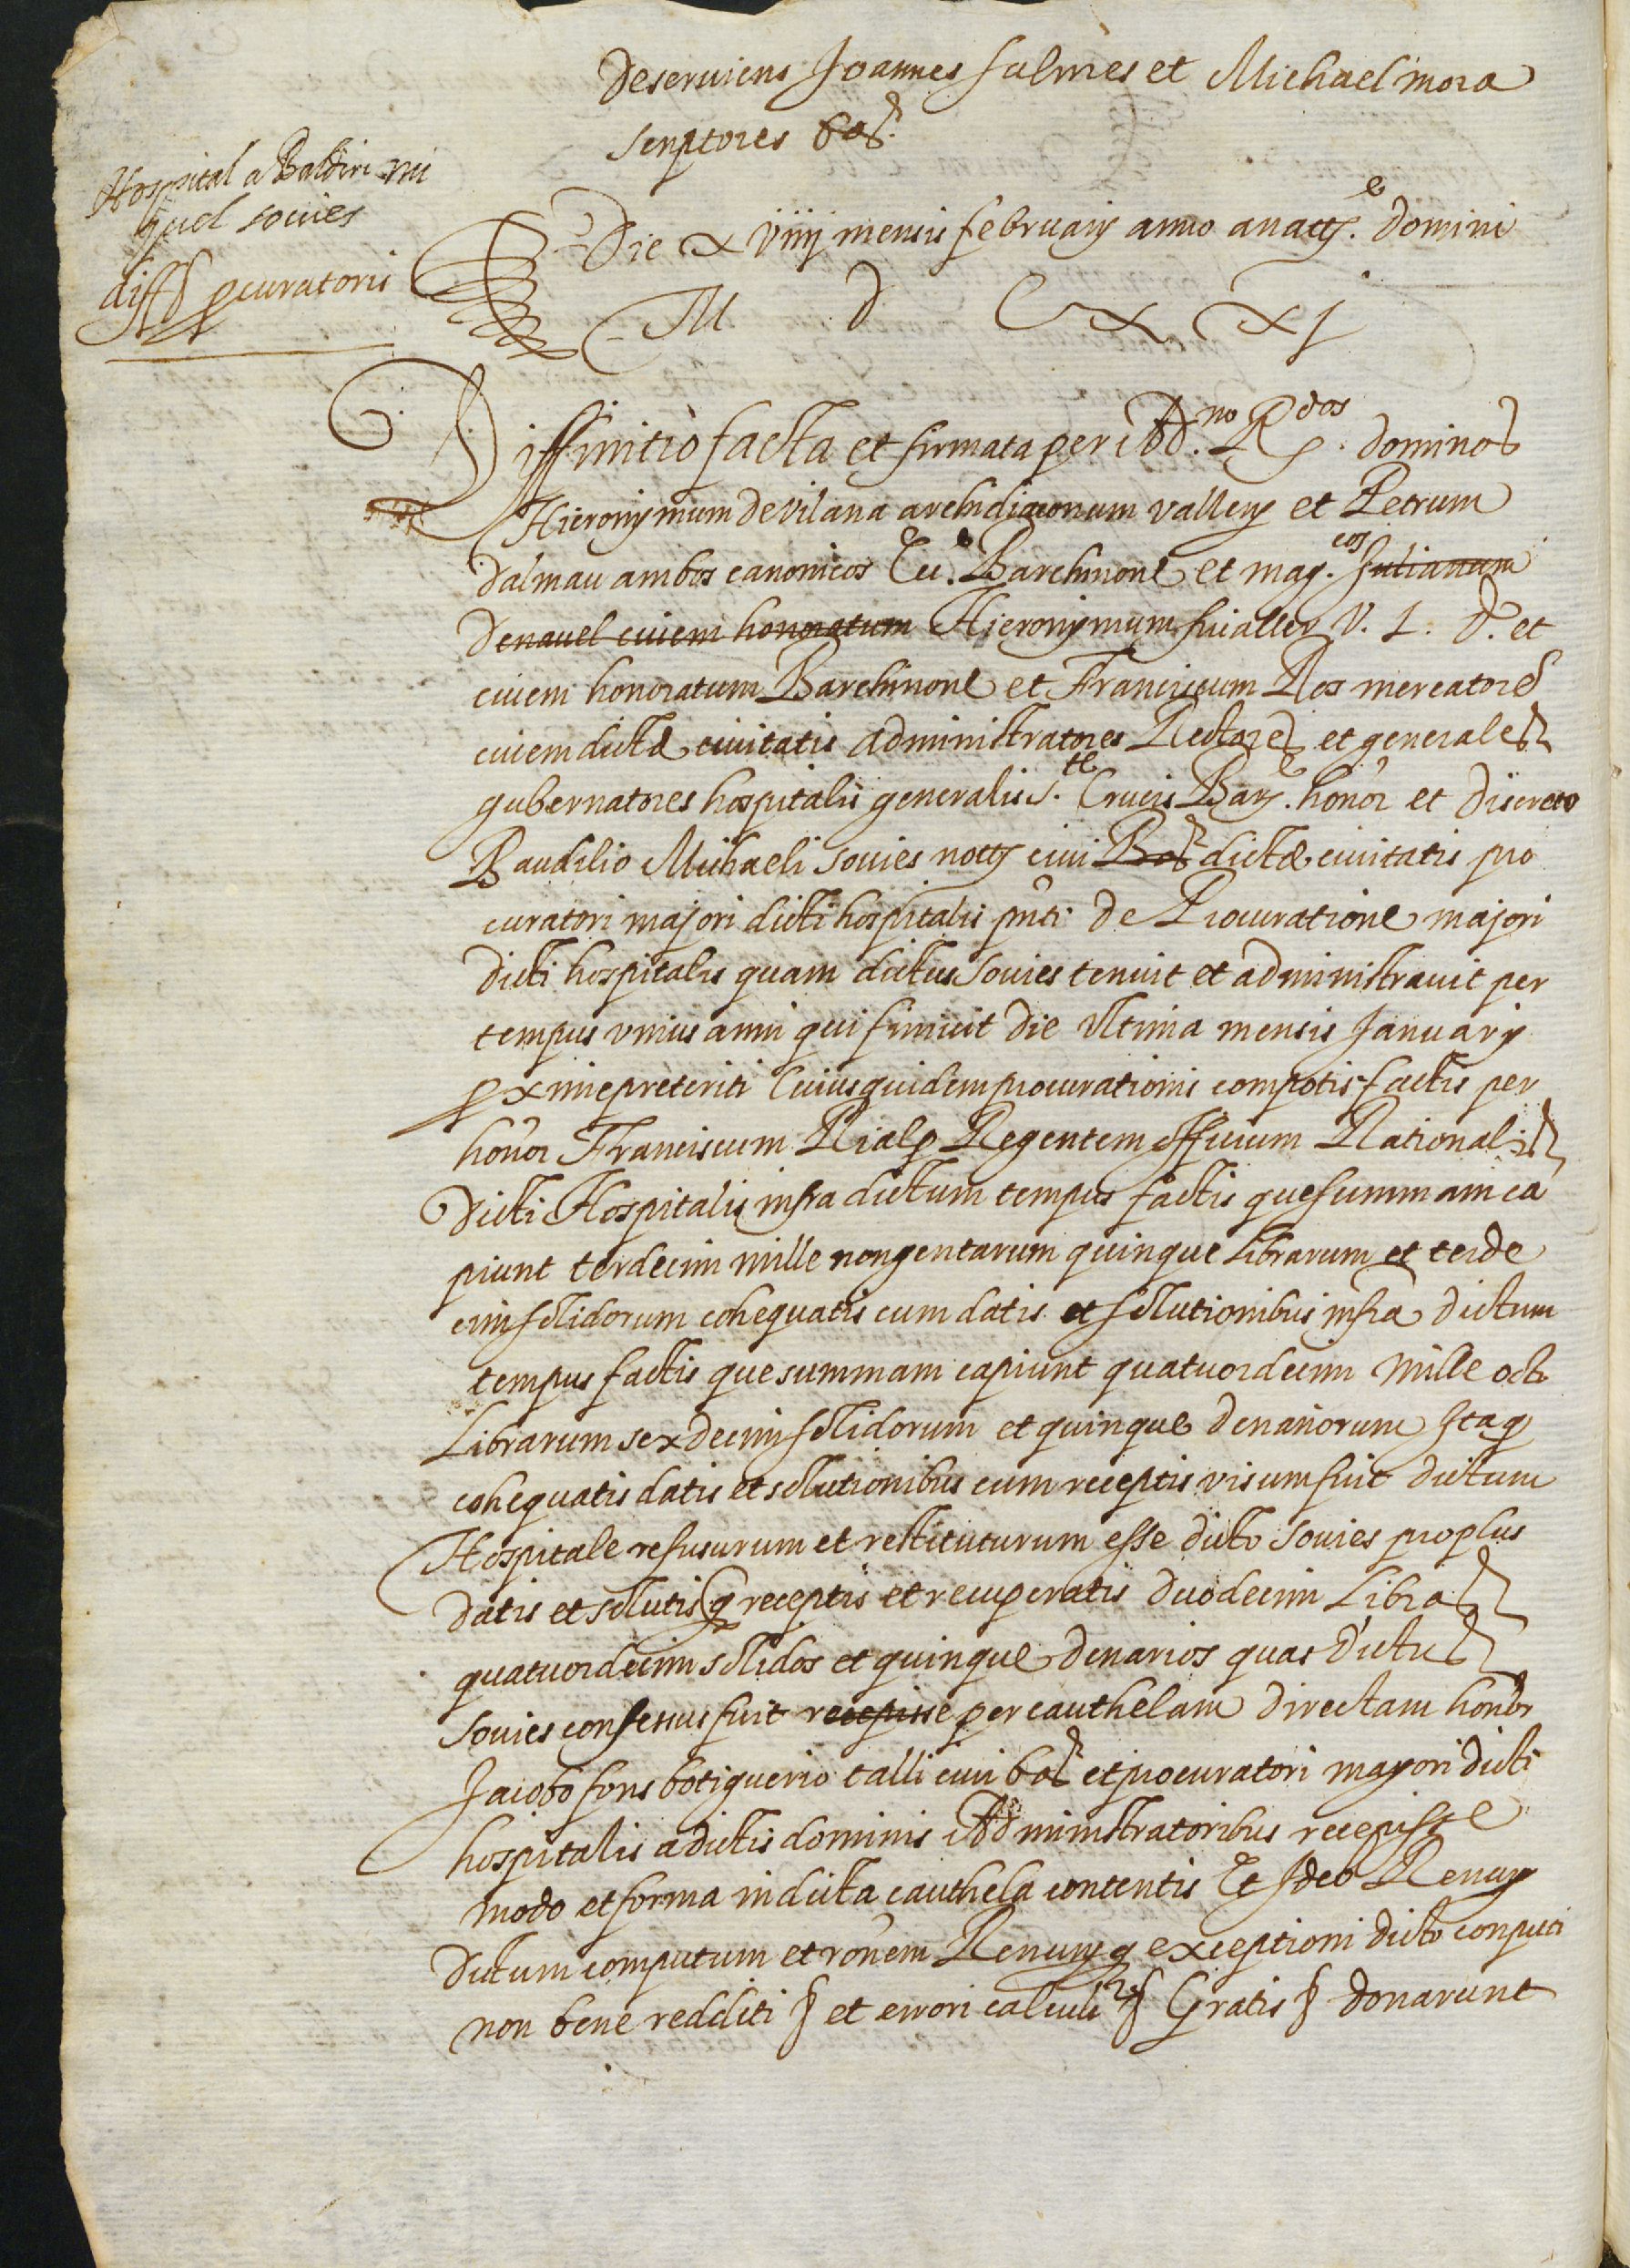 Deserviens Joannes salmes et Michael mora
scriptores
Hospital a Baldiri mi
quel sovies
diff procuratoris
Die xviiij mensis februarij anno a naty. domini
M d Lxxxj
Diffinitio facta et firmata per Ad. no R dos dominos
Hieronymum de vilana archidiaconum vallen et Petrum
dalmau ambos canonicos Barchinone et mag. cos Julianum
denauel ciuem honoratum Hieronymum fiualler V. I. d. et
ciuem honoratum Barchinone et Franciscum Ros mercatores
ciuem dicte ciuitatis administratores Rectores et generales
gubernatores hospitalis generalis S. te Crucis Bar. honor et discreto
Baudilio Michaeli sovies noty ciui dicte ciuitatis pro
curatori majori dicti hospitalis pnti de Procuratione majori
dicti hospitalis quam dictus sovies tenuit et administravit per
tempus vnius anni qui finiuit die vltima mensis Januarij
proxime preteriti Cuiusquidem procurationis compotis factis per
honor Franciscum Rialp Regentem officium Rationalis
dicti Hospitalis infra dictum tempus factis que summam ca
piunt terdecim mille nongentarum quinque Librarum et terde
cim solidorum cohequatis cum datis et solutionibus infra dictum
tempus factis que summam capiunt quatuordecim mille octo
Librarum sexdecim solidorum et quinque denariorum Itaq
cohequatis datis et solutionibus cum receptis visum fuit dictum
Hospitale refusurum et restituturum esse dicto sovies pro plus
datis et solutis q receptis et recuperatis duodecim Libras
quatuordecim solidos et quinque denarios quas dictus
sovies confessus fuit recepisse per cauthelam directam honor
Jacobo fons botiguerio talli ciui et procuratori majori dicti
hospitalis a dictis dominis Administratoribus recepisse
modo et forma in dicta cauthela contentis Et Ideo Renuny
dictum computum et ronem Renuny q exceptioni dicto conputi
non bene redditi § et errori calculi § Gratis § donarunt